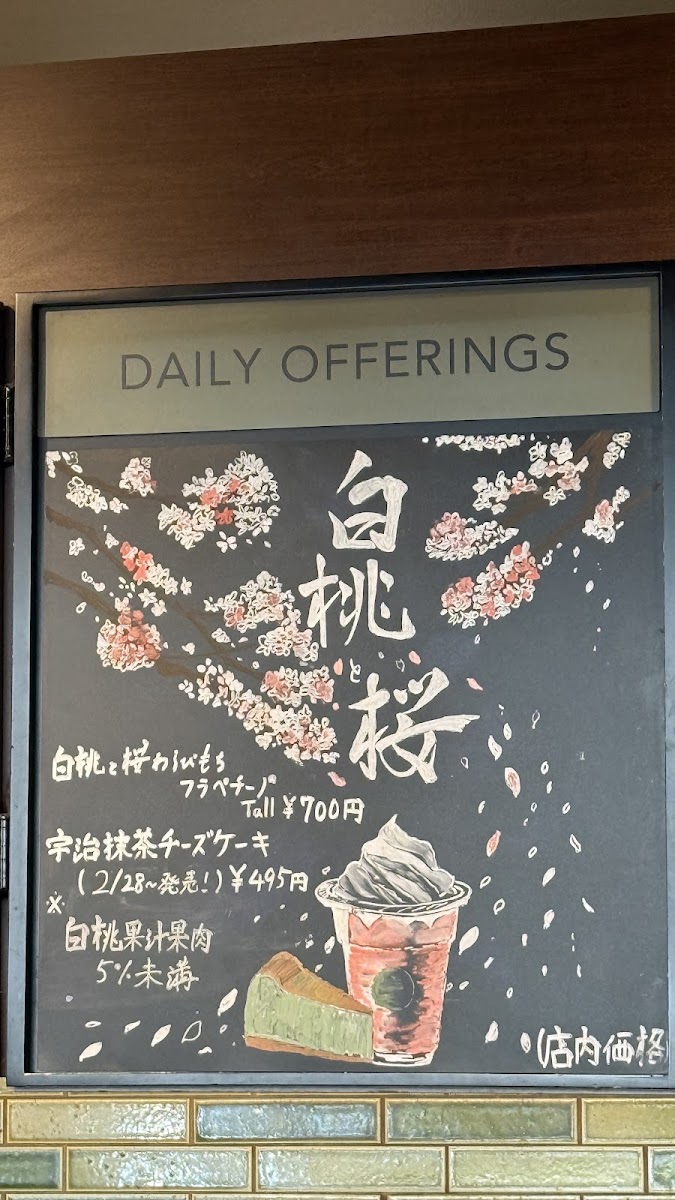 DAILY OFFERINGS
白桃
と
桜
白桃と桜わらびもち
フラペチーノ®
Tall ¥700円
宇治抹茶チーズケーキ
(2/28～発売!) ¥495円
※
白桃果汁果肉
5%未満
(店内価格